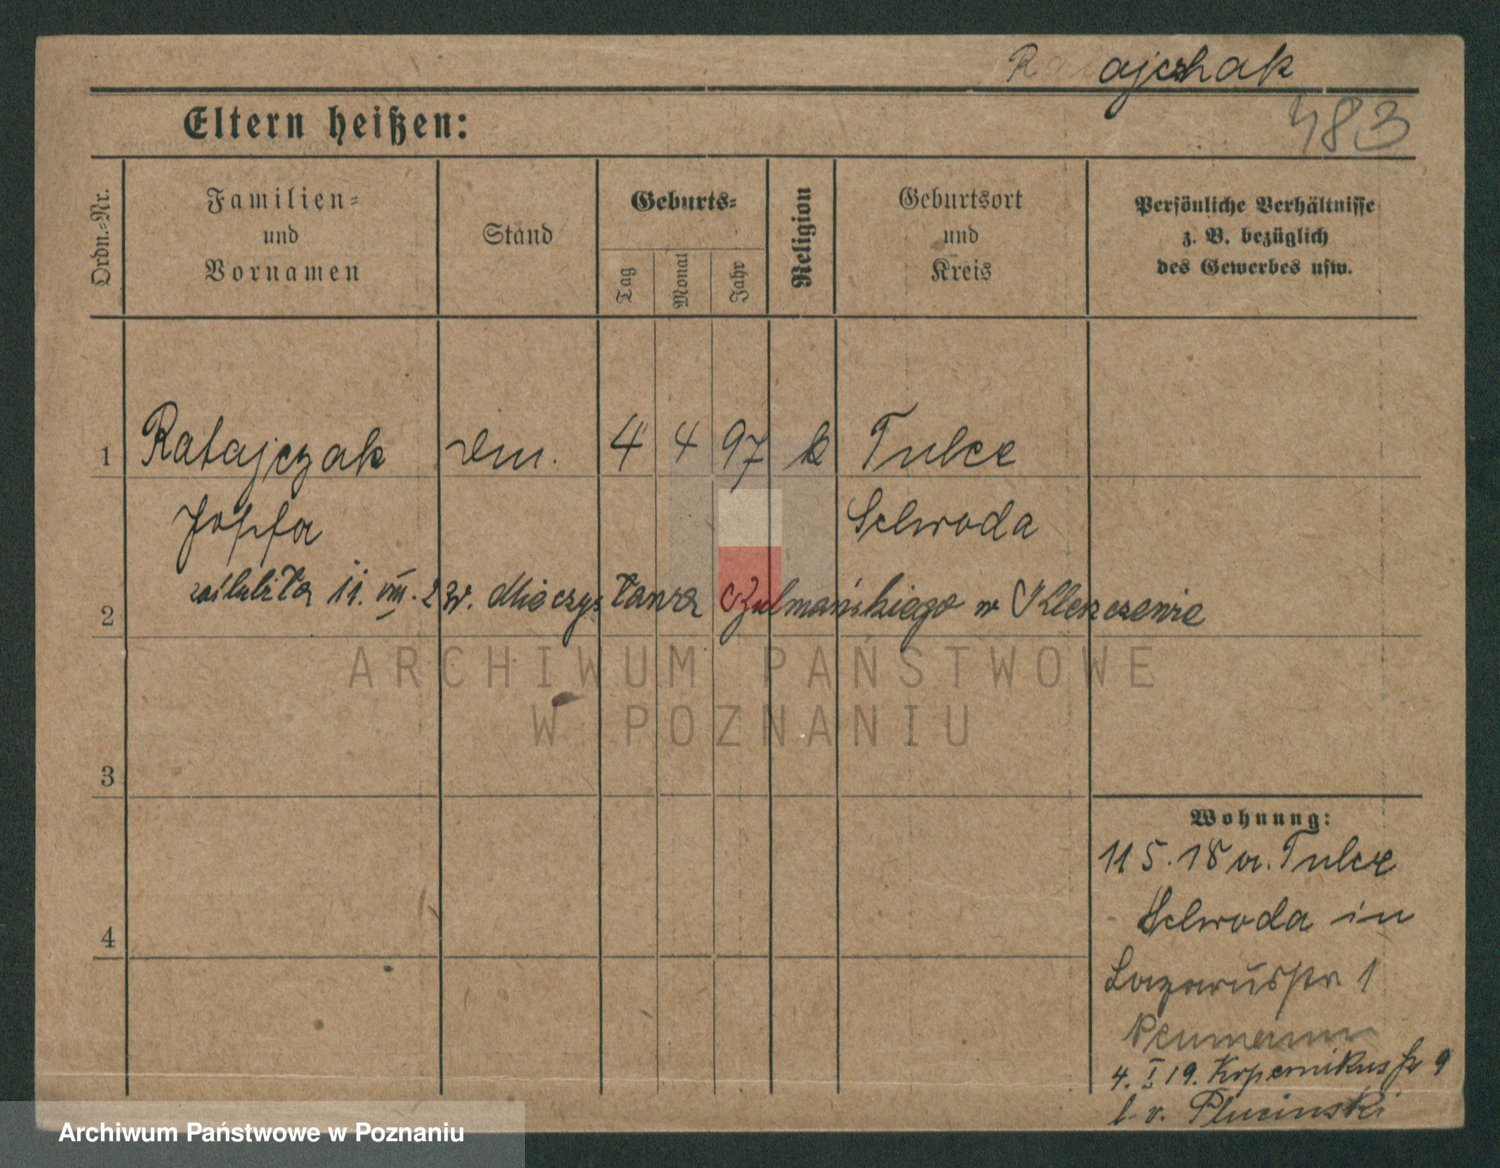 Ratajczak
483
Eltern heißen:
Ordn.-Nr.
Familien-
und
Vornamen
Stand
Geburts-
Tag
Monat
Jahr
Religion
Geburtsort
und
Kreis
Persönliche Verhältnisse
z. B. bezüglich
des Gewerbes usw.
1 Ratajczak 4 4 97 k Tulce
Schroda
zaślubiła 11. VIII. 23 r. Mieczysława w Kleszczewie
2
ARCHIWUM PAŃSTWOWE
W POZNANIU
3
Wohnung:
11 5. 18 a. Tulce
4 Schroda in
Lazarusstr 1
Neumann
4. I 19. Kopernikusstr 9
b. v. Plucinski
Archiwum Państwowe w Poznaniu